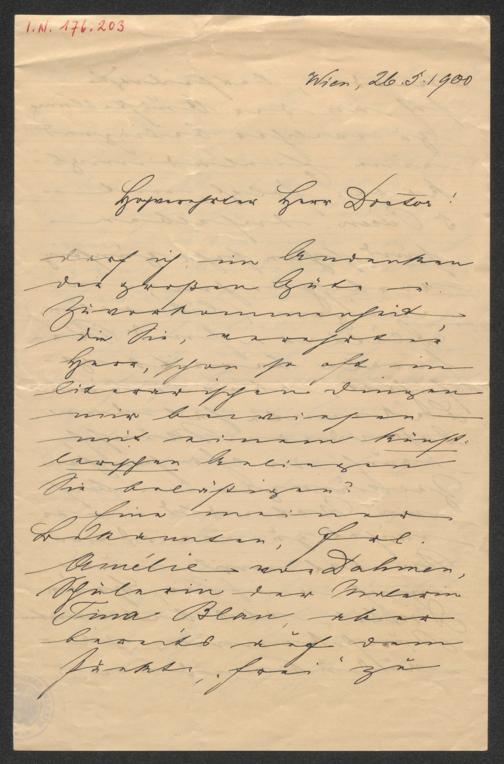 I.N. 176.203
Wien, 26.5.1900
Hochverehrter Herr Doctor!
darf ich im Andenken
der großen Güte u.
Zuvorkommenheit,
die Sie, verehrter
Herr, schon so oft in
literarischen Dingen
mir bewiesen –
mit einem künst-
lerischen Anliegen
Sie belästigen?
Eine meiner
Bekannten, Frl.
Amélie von Dahmen,
Schülerin der Malerin
Tina Blau, aber
bereits auf dem
Punkte, „frei" zu